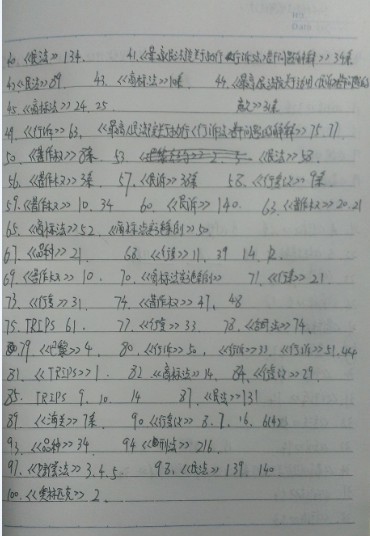 40.《民法》134. 41.《最高人民法院关于执行《行诉法》若干问题的解释》34条
42《民法》89. 43.《商标法》10条 44.《最高人民法院关于适用《民诉法》若干问题的
45.《商标法》24.25 意见》31条
49.《行诉》63,《最高人民法院关于执行《行诉法》若干问题的解释》75.77
50.《著作权》8条 53. 《民法》58.
56.《著作权》3条 57.《民诉》38条 58.《行复议》9条
59.《著作权》10.34 60.《民诉》140. 63.《著作权》20.21
65.《商标法》52.《商标法实施条例》50.
67.《品种》21 68. 11. 39 14.
69.《著作权》10. 70.《商标法实施条例》 71. 21
73. 31. 74.《著作权》47. 48
75. TRIPS 61. 77. 33 78. 74.
79.《巴黎》4. 80.《行诉》50.《行诉》33.《行诉》51.44
81.《TRIPS》1. 82.《商标法》14. 84.《行复议》29.
85. TRIPS 9. 10. 14 87.《民法》131
89.《海关》7条 90《行复议》8.7.16.
93.《品种》34 94《刑法》216
97. 3.4.5. 98.《民法》139 140
100. 2.